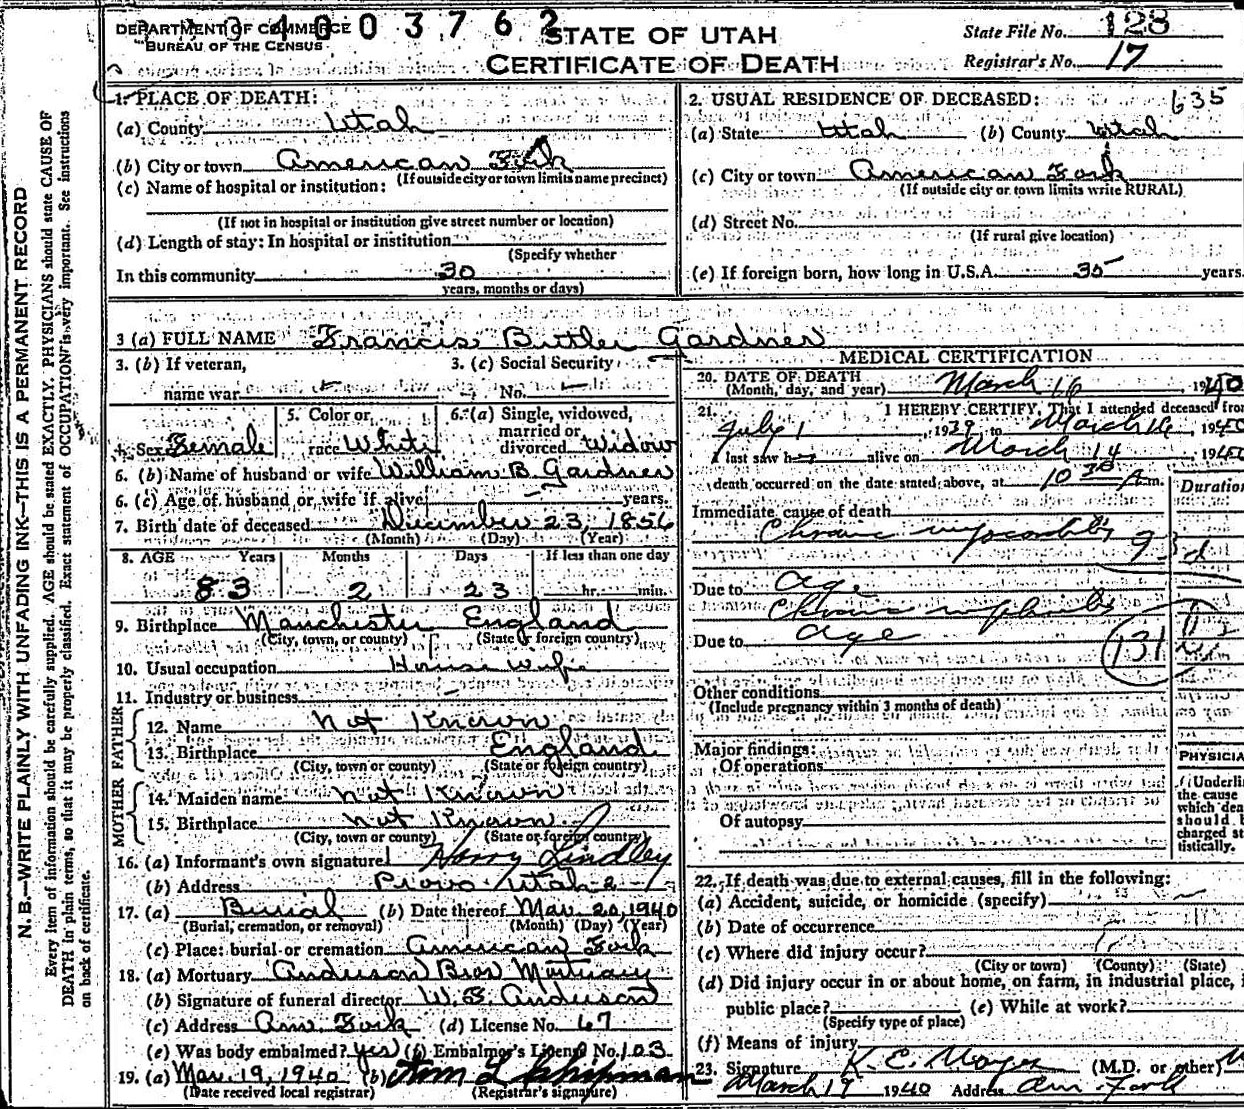 DEPARTMENT OF COMMERCE
BUREAU OF THE CENSUS
4003762
STATE OF UTAH
CERTIFICATE OF DEATH
State File No. 128
Registrar's No. 17
N.B.—WRITE PLAINLY WITH UNFADING INK—THIS IS A PERMANENT RECORD
Every item of information should be carefully supplied. AGE should be stated EXACTLY. PHYSICIANS should state CAUSE OF
DEATH in plain terms, so that it may be properly classified. Exact statement of OCCUPATION is very important. See instructions
on back of certificate.
1. PLACE OF DEATH:
(a) County Utah
(b) City or town American Fork
(If outside city or town limits name precinct)
(c) Name of hospital or institution:
(If not in hospital or institution give street number or location)
(d) Length of stay: In hospital or institution
(Specify whether
In this community 30
years, months or days)
2. USUAL RESIDENCE OF DECEASED: 635
(a) State Utah (b) County Utah
(c) City or town American Fork
(If outside city or town limits write RURAL)
(d) Street No.
(If rural give location)
(e) If foreign born, how long in U.S.A. 35 years.
3 (a) FULL NAME Francis Buttler Gardner
3. (b) If veteran, 3. (c) Social Security
name war No.
4. Sex Female 5. Color or race White 6. (a) Single, widowed, married or divorced Widow
6. (b) Name of husband or wife William B. Gardner
6. (c) Age of husband or wife if alive years.
7. Birth date of deceased December 23, 1856
(Month) (Day) (Year)
8. AGE Years Months Days If less than one day
83 2 23 hr. min.
9. Birthplace Manchester England
(City, town, or county) (State or foreign country)
10. Usual occupation House wife
11. Industry or business
FATHER
12. Name Not Known
13. Birthplace England
(City, town or county) (State or foreign country)
MOTHER
14. Maiden name Not Known
15. Birthplace Not Known
(City, town or county) (State or foreign country)
16. (a) Informant's own signature Harry Lindley
(b) Address Provo Utah
17. (a) Burial (b) Date thereof Mar. 20, 1940
(Burial, cremation, or removal) (Month) (Day) (Year)
(c) Place: burial or cremation American Fork
18. (a) Mortuary Anderson Bros Mortuary
(b) Signature of funeral director W. E. Anderson
(c) Address Am. Fork (d) License No. 67
(e) Was body embalmed? yes (f) Embalmer's License No. 103
19. (a) Mar. 19, 1940 (b) Wm L Chipman
(Date received local registrar) (Registrar's signature)
MEDICAL CERTIFICATION
20. DATE OF DEATH
(Month, day, and year) March 16, 1940
21. I HEREBY CERTIFY, That I attended deceased from
July 1, 1939 to March 16 1940
I last saw her alive on March 14 1940
death occurred on the date stated above, at 10 30 A.m.
Duration
Immediate cause of death
Chronic myocarditis
Due to age
Chronic nephritis
Due to age
131
Other conditions
(Include pregnancy within 3 months of death)
Major findings:
Of operations
Of autopsy
PHYSICIA
(Underlin
the cause
which dea
should b
charged st
tistically.
22. If death was due to external causes, fill in the following:
(a) Accident, suicide, or homicide (specify)
(b) Date of occurrence
(c) Where did injury occur?
(City or town) (County) (State)
(d) Did injury occur in or about home, on farm, in industrial place, i
public place? (e) While at work?
(Specify type of place)
(f) Means of injury
23. Signature K. E. Noyes (M.D. or other) M
March 19 1940 Address Am. Fork